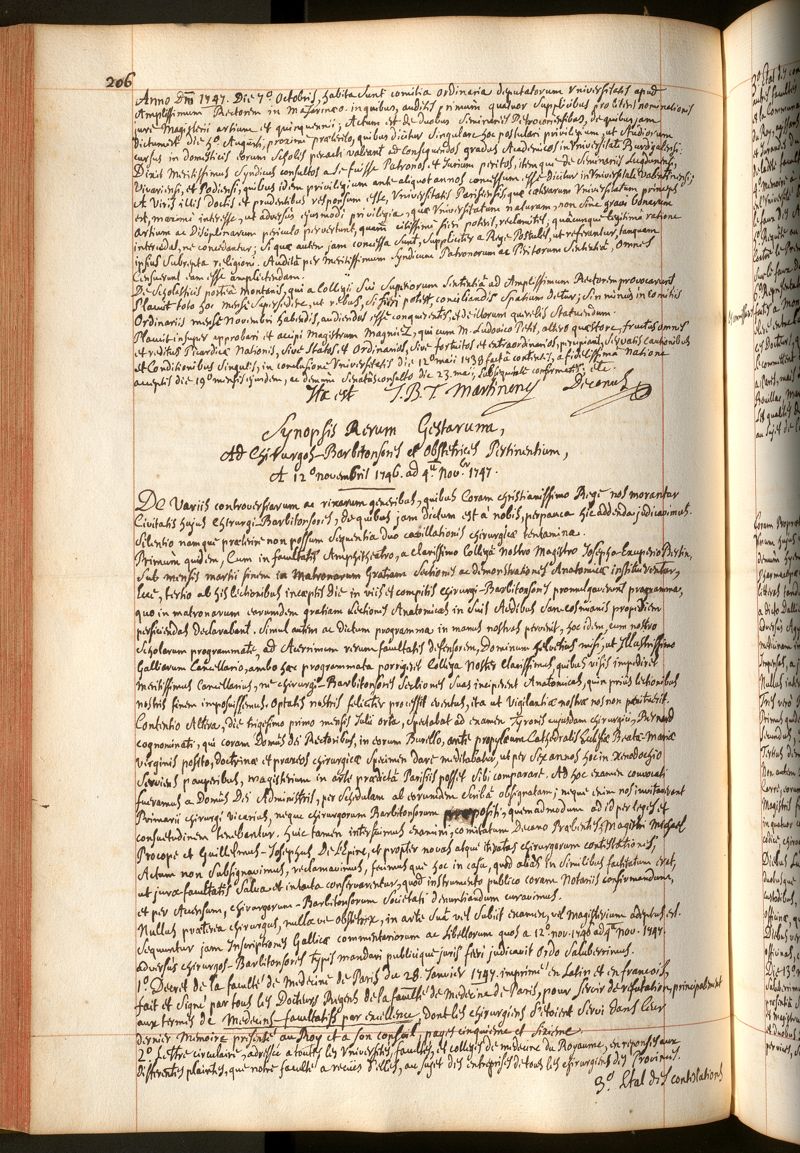 206
Anno Dni 1747. Die 7ª. Octobris, habita sunt comitia ordinaria deputatorum Universitatis apud
Amplissimum Rectorem in Mazarinæo. in quibus, auditis primum quatuor supplicibus pro litteris nominationis
jure Magisterii artium et quinquennii; Actum est de duobus Seminariis Petrocoriensibus, de quibus jam
dictum est die hª. Augusti, proximi præterito, quibus dicitur singulare hoc postulari privilegium, ut studiorum
cursus in domesticis eorum scholis peracti valeant ad consequendos gradus Academicos in Universitate Burdigalensi.
Dixit Meritissimus Syndicus consultos a se fuisse Patronos et Jurium peritos, itemque de Seminariis Lugdunensi,
Vivariensi, et Podiensi, quibus idem privilegium ante aliquot annos concessum esse dicitur in Universitate Valentinensi;
A Viris illis doctis et prudentibus responsum esse, Universitatis Parisiensis, quæ cæterarum Universitatum princeps
est, maximi interesse, ut adversus ejusmodi privilegia, quæ Universitatum naturam, non sine gravi bonarum
artium ac disciplinarum periculo pervertunt, quam citissime fieri poterit, reclamitet, quacunque legitima ratione
intercedat, ne concedantur; si quæ autem jam concessa sunt, suppliciter a Rege postulet, ut referantur, tanquam
ipsius subrepta religioni. Auditâ per Meritissimum Syndicum Patronorum ac Peritorum Sententiâ, omnes
censuerunt eam esse amplectendam.
De Scholasticis portæ montanis, qui a Collegii sui superiorum sententiâ ad Amplissimum Rectorem provocarunt
Placuit toto hoc mense supersedere, ut rebus, si fieri potest, conciliandis spatium detur; sin minus in comitiis
Ordinariis mense Novembri habendis, audiendos esse conquerentes, et de illorum querelis statuendum.
Placuit insuper approbari et accipi Magistrum Magniez, qui cum M. Ludovico Petit, altero quæstore, fructus omnes
et reditus Picardicæ Nationis, sive statos et Ordinarios, sive fortuitos et extraordinarios, percipiant, servatis cautionibus
et Conditionibus singulis, in conclusione Universitatis die 12ª maii 1739 factâ contentis, a fidelissima Natione
acceptis die 19ª mensis ejusdem, ac demum senatusconsulto die 23. maii subsequente confirmatis. etc.
Ita est J. B. T. Martinenq Decanus
Synopsis Rerum Gestarum,
Ad Chirurgos-Barbitonsores et Obstetrices Pertinentium,
A 12ª novembris 1746. ad 4um Novbr. 1747.
De Variis controversiarum ac rixarum generibus, quibus Coram christianissimo Rege nos morantur
Civitatis hujus Chirurgi-Barbitonsores, de quibus jam dictum est a nobis, perpauca hic addenda judicavimus.
Silentio namque præterire non possum sequentia duo cavillationis chirurgicæ tentamina.
Primum quidem, Cum in facultatis Amphitheatro, a Clarissimo Collegâ nostro Magistro Josepho-Exuperio Bertin,
sub mensis martii finem in Matronarum Gratiam sectiones ac demonstrationes Anatomicæ instituerentur,
ecce, tertio ab his lectionibus inceptis die in viis et compitis chirurgi-Barbitonsores promulgaverunt programma,
quo in matronarum earumdem gratiam lectiones Anatomicas in suis Ædibus San-cosmianis propediem
perficiendas declarabant. Simul autem ac dictum programma in manus nostras pervenit, hoc idem, cum nostro
Scholarum programmate, ad Acerrimum rerum facultatis defensorem, Dominum helvetius misi, ut Illustrissimo
Galliarum Cancellario, ambo hæc programmata porrigeret Collega Noster clarissimus, quibus visis impediret
Meritissimus Cancellarius, ne chirurgi-Barbitonsores Sectiones suas inciperent Anatomicas, quin prius lectionibus
nostris finem imposuissemus. Optatis nostris feliciter processit eventus, ita ut Vigilantiæ nostræ nos non pœnituerit.
Contentio Altera, die trigesimo primo mensis Julii orta, spectabat ad examen tyronis cujusdam chirurgici, Bernard
cognominati, qui coram Dominis Dei Rectoribus, in eorum Burello, ante propylæum Cathedralis Ecclesiæ Beatæ-Mariæ
virginis posito, doctrinæ et praxeos chirurgicæ Specimen dare meditabatur, ut per sex annos hoc in Xenodochio
Serviens pauperibus, magisterium in arte prædictâ Parisiis posset sibi comparare. Ad hoc examen convocati
fueramus a Domûs Dei Administris, per Schedulam ab eorumdem scribâ obsignatam; neque enim nos invitaverant
Primarii chirurgi vicarius, neque chirurgorum Barbitonsorum præpositi, quemadmodum ad id per leges et
consuetudinem tenebantur. Huic tamen interfuimus examini, comitantum Decano Præsentibus Magistris Michael
Procope et Guillelmus-Josephus De l'Epine, et propter novas atque iteratas chirurgorum contestationes,
Actum non subsignavimus, reclamavimus, fecimusque hoc in casu, quod alias in similibus factitatum erat,
ut jura facultatis salva et intacta conservarentur, quod instrumento publico coram Notariis confirmandum,
et per Accensum, chirurgorum-Barbitonsorum Societati denuntiandum curavimus.
Nullus præterea chirurgus, nullave obstetrix, in arte suâ vel subiit examen, vel Magisterium adeptus est.
Sequuntur jam Inscriptiones Gallicæ commentariorum ac libellorum quos a 12ª. nov. 1746 ad 4um Nov. 1747.
adversus chirurgos-Barbitonsores typis mandari publicique juris fieri judicavit Ordo Saluberrimus.
1º. Decret de la faculté de Medecine de Paris du 28. Janvier 1747. imprimé en Latin et en francois,
fait et signé par tous les Docteurs Regens de la faculté de Medecine de Paris, pour servir de refutation, principalement
aux termes de Medecins-facultatifs par excellence, dont les chirurgiens s'etoient servi dans leur
dernier Memoire présenté au Roy et à son conseil, pages cinquieme et sixieme.
2º. Lettre circulaire, adressée a toutes les Universités, facultés, et colleges de medecine du Royaume, en réponses aux
differentes plaintes, que notre faculté a reçües d'elles, au sujet des entreprises de tous les chirurgiens des Provinces.
3º. Etat des contestations